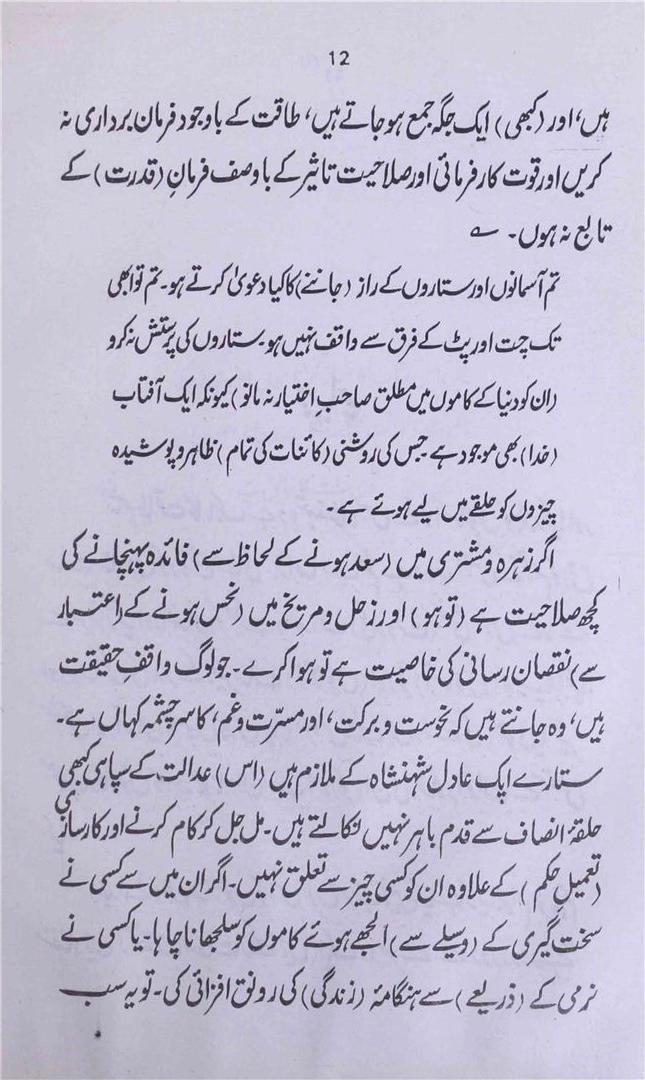 12
ہیں، اور (کبھی) ایک جگہ جمع ہو جاتے ہیں، طاقت کے باوجود فرمان برداری نہ
کریں اور قوت کارفرمائی اور صلاحیت تاثیر کے باوصف فرمانِ (قدرت) کے
تابع نہ ہوں۔ ؎
تم آسمانوں اور ستاروں کے راز (جاننے) کا کیا دعویٰ کرتے ہو۔ تم تو ابھی
تک چت اور پٹ کے فرق سے واقف نہیں ہو۔ ستاروں کی پرستش نہ کرو
(ان کو دنیا کے کاموں میں مطلق صاحبِ اختیار نہ مانو) کیونکہ ایک آفتاب
(خدا) بھی موجود ہے جس کی روشنی (کائنات کی تمام) ظاہر و پوشیدہ
چیزوں کو حلقے میں لیے ہوئے ہے۔
اگر زہرہ و مشتری میں (سعد ہونے کے لحاظ سے) فائدہ پہنچانے کی
کچھ صلاحیت ہے (تو ہو) اور زحل و مریخ میں (نحس ہونے کے اعتبار
سے) نقصان رسانی کی خاصیت ہے تو ہوا کرے۔ جو لوگ واقفِ حقیقت
ہیں، وہ جانتے ہیں کہ نحوست و برکت، اور مسرّت و غم، کا سرچشمہ کہاں ہے۔
ستارے ایک عادل شہنشاہ کے ملازم ہیں (اس) عدالت کے سپاہی کبھی
حلقۂ انصاف سے قدم باہر نہیں نکالتے ہیں۔ مل جل کر کام کرنے اور کارسازی
(تعمیلِ حکم) کے علاوہ ان کو کسی چیز سے تعلق نہیں۔ اگر ان میں سے کسی نے
سخت گیری کے (وسیلے سے) الجھے ہوئے کاموں کو سلجھانا چاہا۔ یا کسی نے
نرمی کے (ذریعے) سے ہنگامۂ (زندگی) کی رونق افزائی کی۔ تو یہ سب